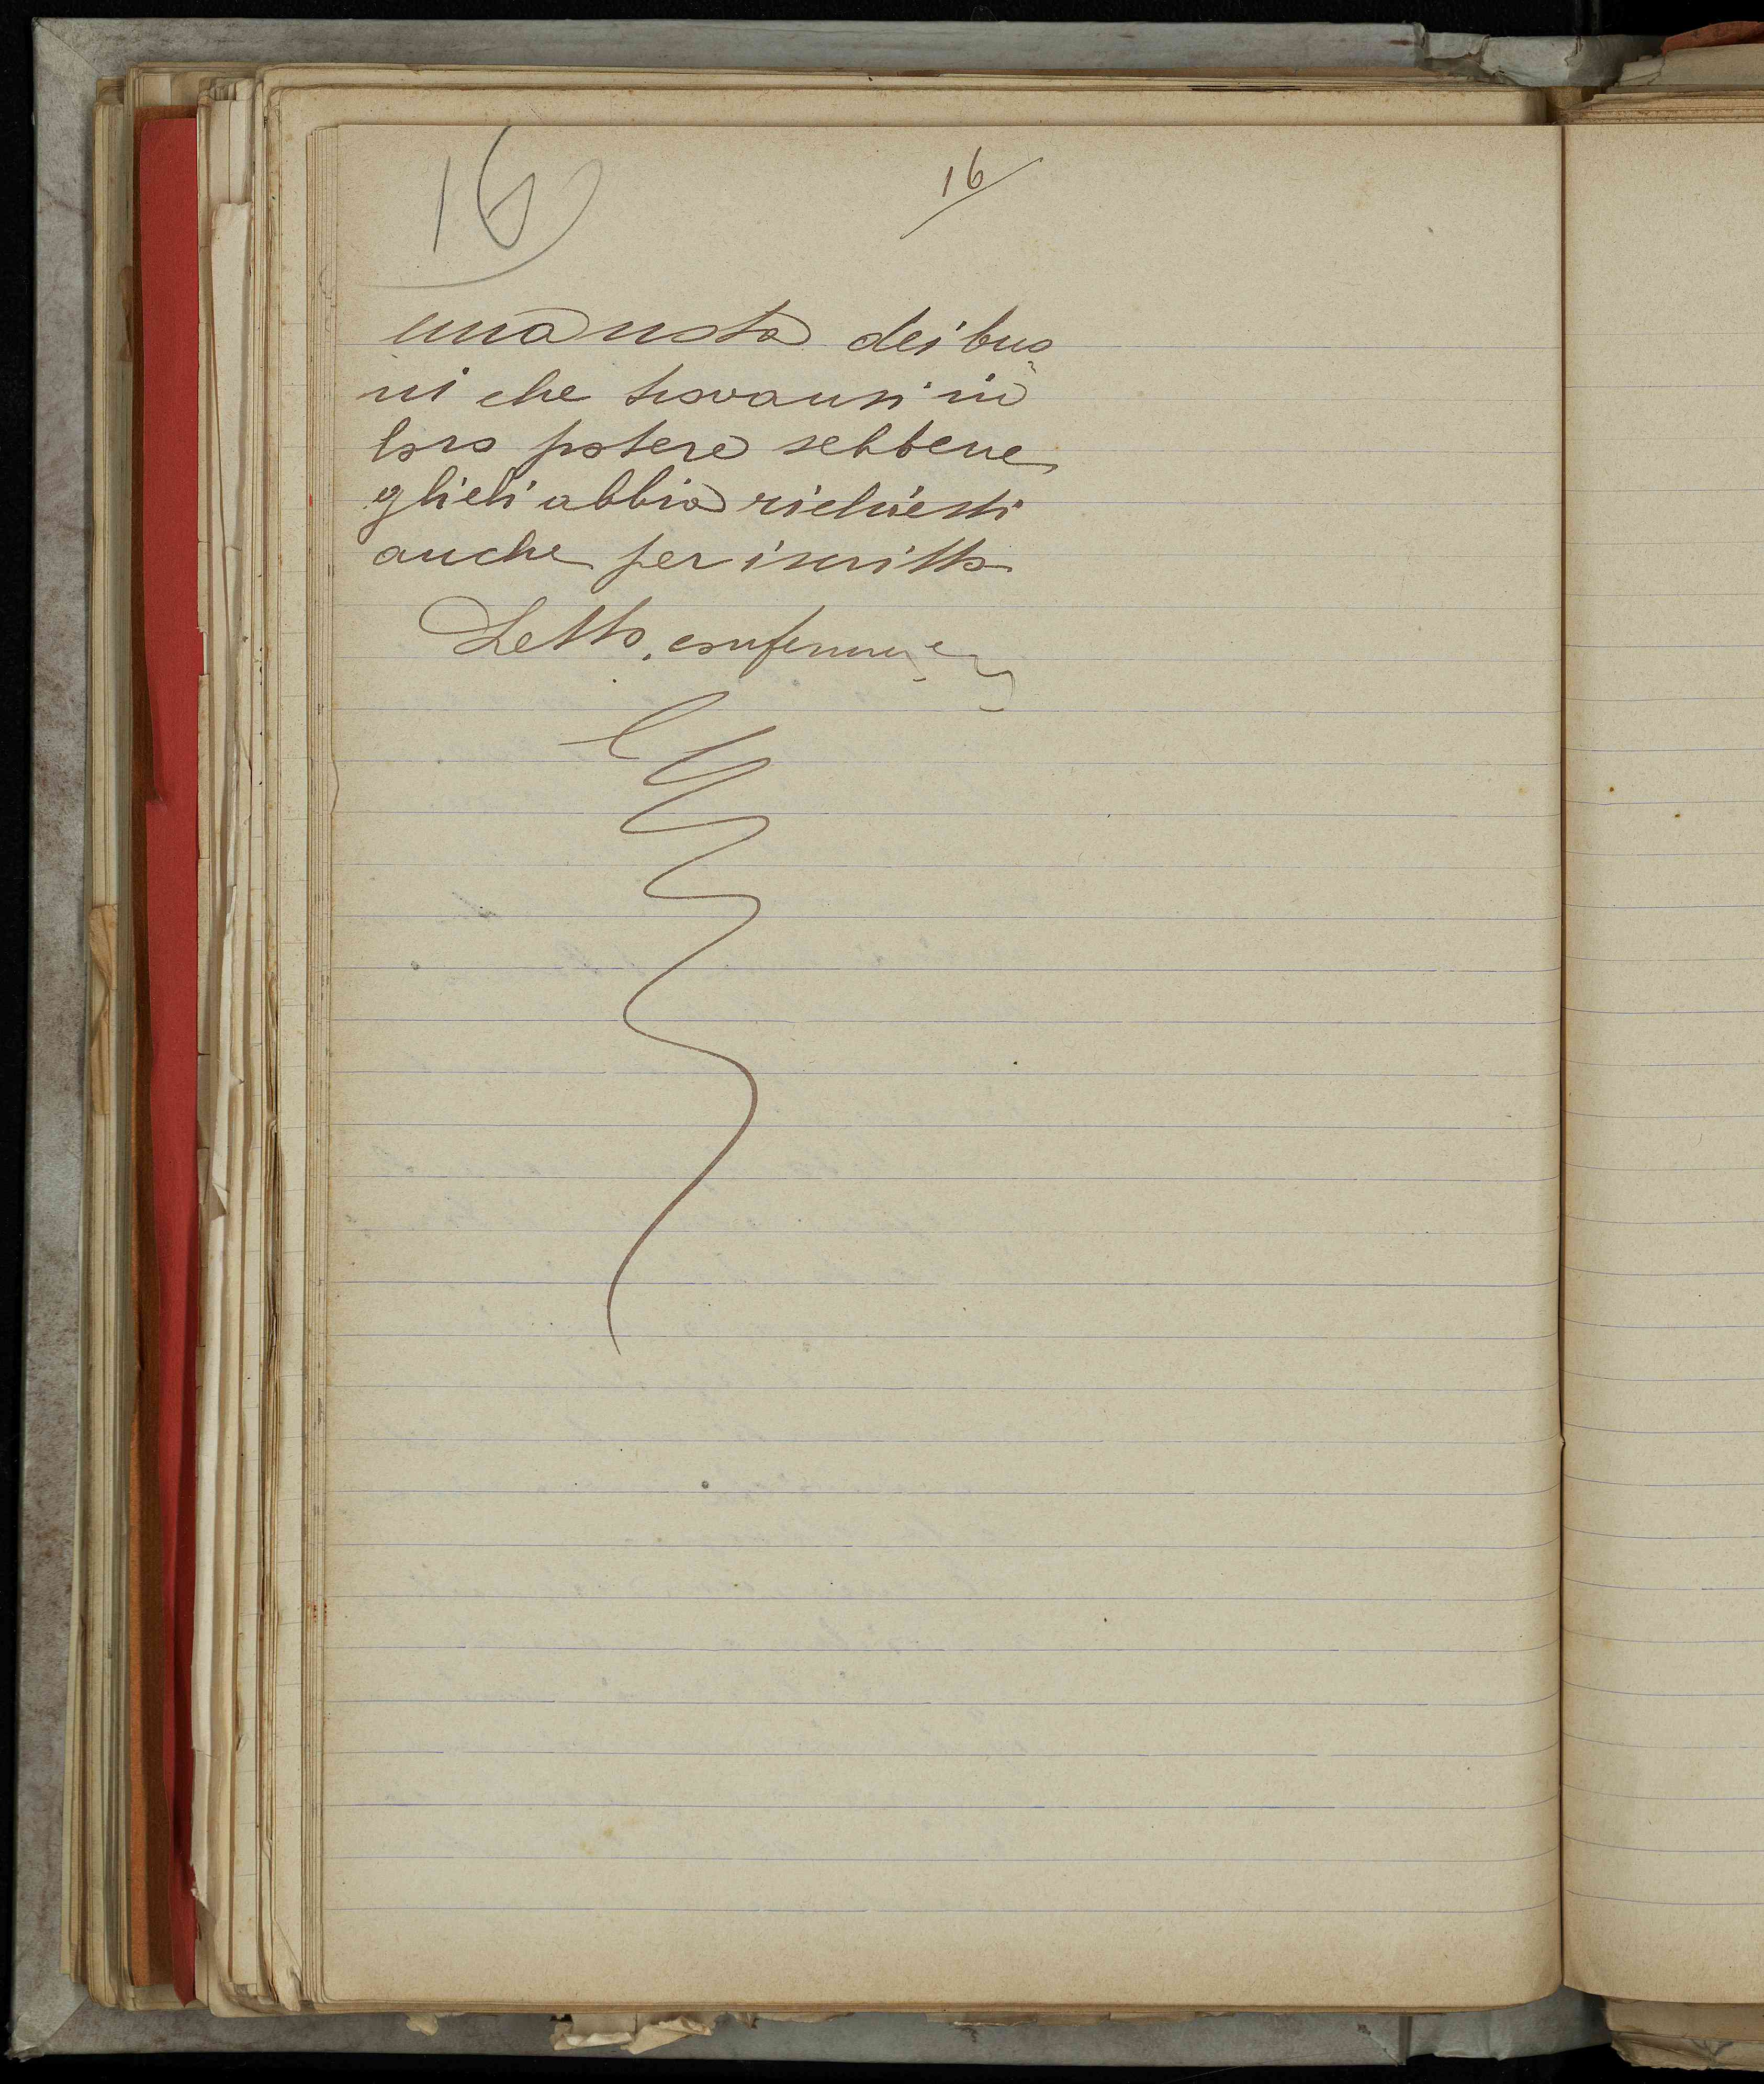 16
16
una nota dei buo
ni che trovansi in
loro potere sebbene
glieli abbia richiesti
anche per iscritto
Letto,